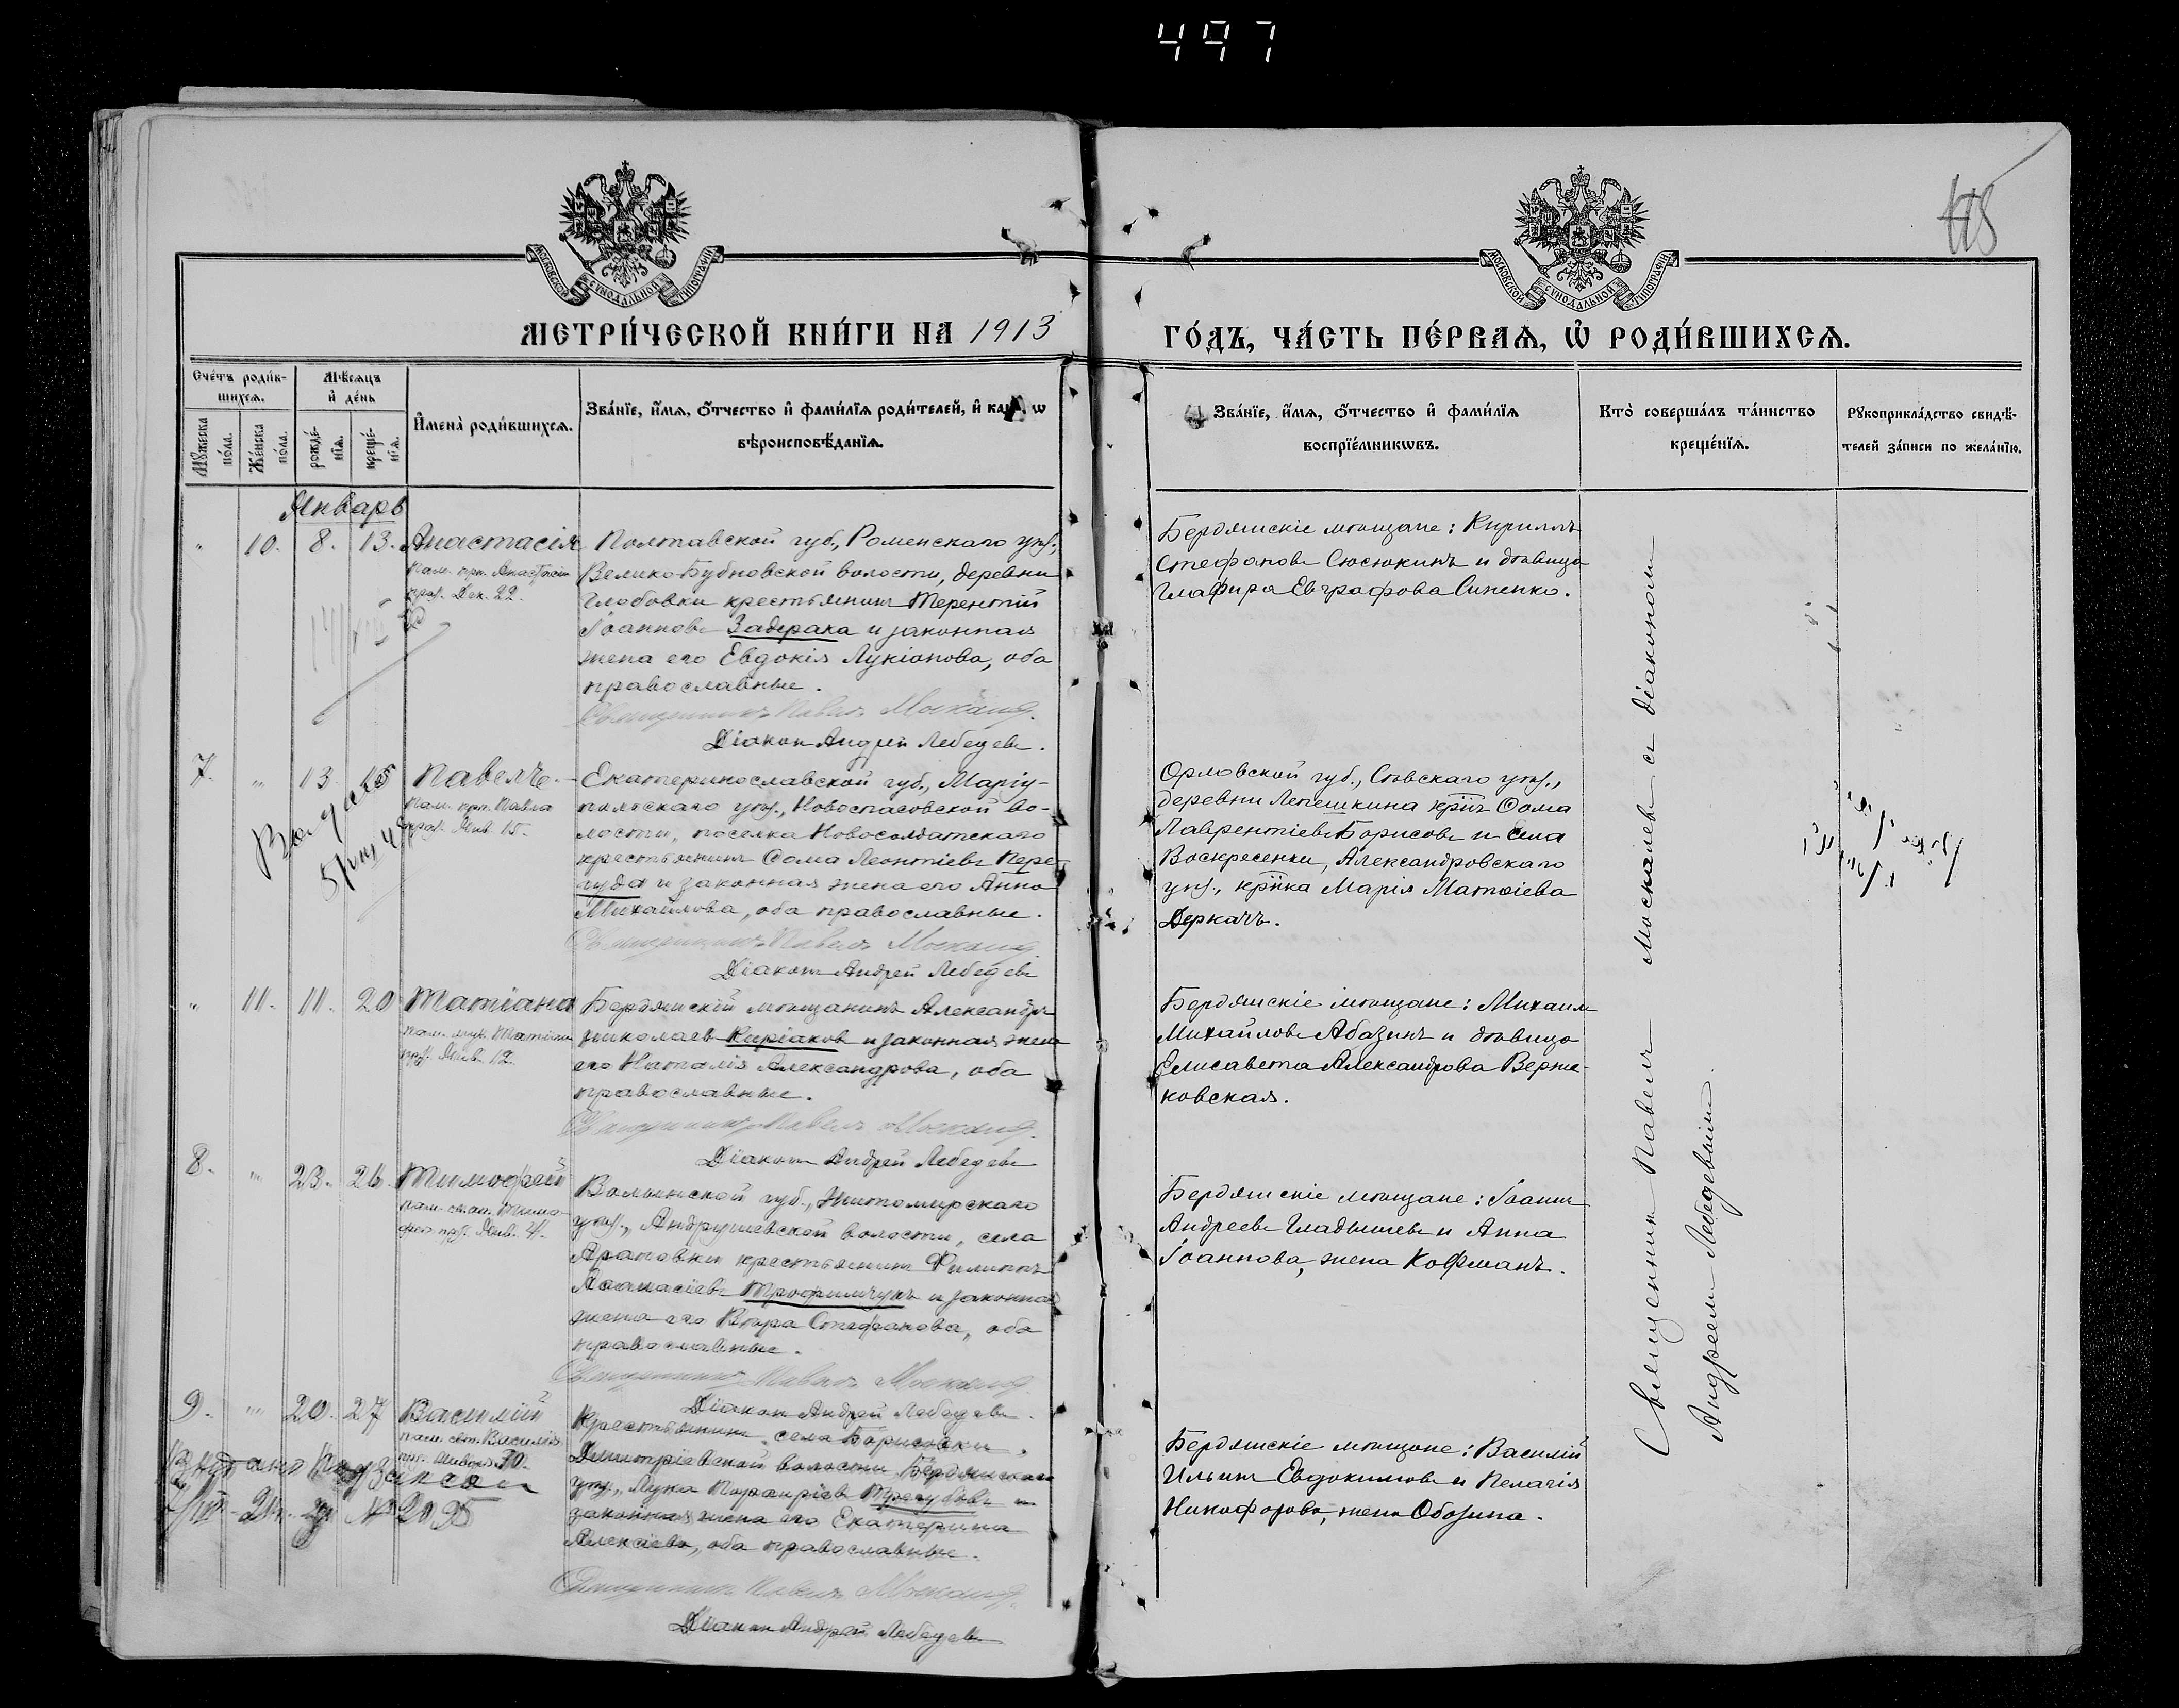 497
118
МОСКОВСКОЙ СѴНОДАЛЬНОЙ ТИПОГРАФІИ
МОСКОВСКОЙ СѴНОДАЛЬНОЙ ТИПОГРАФІИ
МЕТРИ́ЧЕСКОЙ КНИ́ГИ НА 1913
ГО́ДЪ, ЧА́СТЬ ПЕ́РВАѦ, Ѡ҆ РОДИ́ВШИХСѦ.
Сче́тъ роди́в-
шихсѧ.
Мꙋжеска по́ла.
Же́нска по́ла.
Мѣ́сѧцъ
и҆ де́нь
рожде́-
нїѧ.
креще́-
нїѧ.
И҆мена̀ роди́вшихсѧ.
Зва́нїе, и҆́мѧ, ѻ҆́тчество и҆ фами́лїѧ роди́телей, и҆ како́гѡ
вѣроисповѣ́данїѧ.
Зва́нїе, и҆́мѧ, ѻ҆́тчество и҆ фами́лїѧ
воспрїе́мникѡвъ.
Кто̀ соверша́лъ та́инство
креще́нїѧ.
Рꙋкоприкла́дство свидѣ́-
телей за́писи по жела́нїю.
Январь
" 10. 8. 13. Анастасія
пам. прп. Анастасіи
прз. Дек. 22.
Полтавской губ., Роменскаго уѣз.,
Велико-Бубновской волости, деревни
Глобовки крестьянинъ Терентій
Іоанновъ Задерака и законная
жена его Евдокія Лукіанова, оба
православные.
Священникъ Павелъ Москалев.
Діаконъ Андрей Лебедевъ.
Бердянскіе мѣщане: Кириллъ
Стефановъ Сюсюкинъ и дѣвица
Глафира Евграфова Синенко.
7. " 13. 15 Павелъ.
пам. прп. Павла
прз. Янв. 15.
Выдано
Екатеринославской губ., Маріу-
польскаго уѣз., Новоспасовской во-
лости, поселка Новосолдатскаго
крестьянинъ Ѳома Леонтіевъ Пере-
гуда и законная жена его Анна
Михайлова, оба православные.
Священникъ Павелъ Москалев
Діаконъ Андрей Лебедевъ
Орловской губ., Сѣвскаго уѣз.,
деревни Лепешкина крнъ Ѳома
Лаврентіевъ Борисовъ и села
Воскресенки, Александровскаго
уѣз., крнка Марія Матѳіева
Деркачъ.
" 11. 11. 20 Татіана
пам. муч. Татіаны
прз. Янв. 12.
Бердянскій мѣщанинъ Александръ
Николаевъ Киріаковъ и законная жена
его Наталія Александрова, оба
православные.
Священникъ Павелъ Москалев.
Діаконъ Андрей Лебедевъ
Бердянскіе мѣщане: Михаилъ
Михайловъ Абазинъ и дѣвица
Елисавета Александрова Верже-
ковская.
8. " 23. 26. Тимофей
пам. св. ап. Тимо-
фея прз. Янв. 4.
Волынской губ., Житомирскаго
уѣз., Андрушевской волости, села
Араповки крестьянинъ Филиппъ
Аѳанасіевъ Трофимчукъ и законная
жена его Вѣра Стефанова, оба
православные.
Священникъ Павелъ Москалев.
Діаконъ Андрей Лебедевъ.
Бердянскіе мѣщане: Іоаннъ
Андреевъ Гладышевъ и Анна
Іоаннова, жена Кофманъ.
9. " 20. 27 Василій
пам. свт. Василія
прз. Января 30.
№ 2095
Крестьянинъ села Борисовки,
Димитріевской волости Бердянскаго
уѣз., Лука Порфиріевъ Трегубовъ и
законная жена его Екатерина
Алексіева, оба православные.
Священникъ Павелъ Москалев.
Діаконъ Андрей Лебедевъ
Бердянскіе мѣщане: Василій
Ильинъ Евдокимовъ и Пелагія
Никофорова, жена Обозина.
Священникъ Павелъ Москалевъ съ діакономъ
Андреемъ Лебедевымъ.